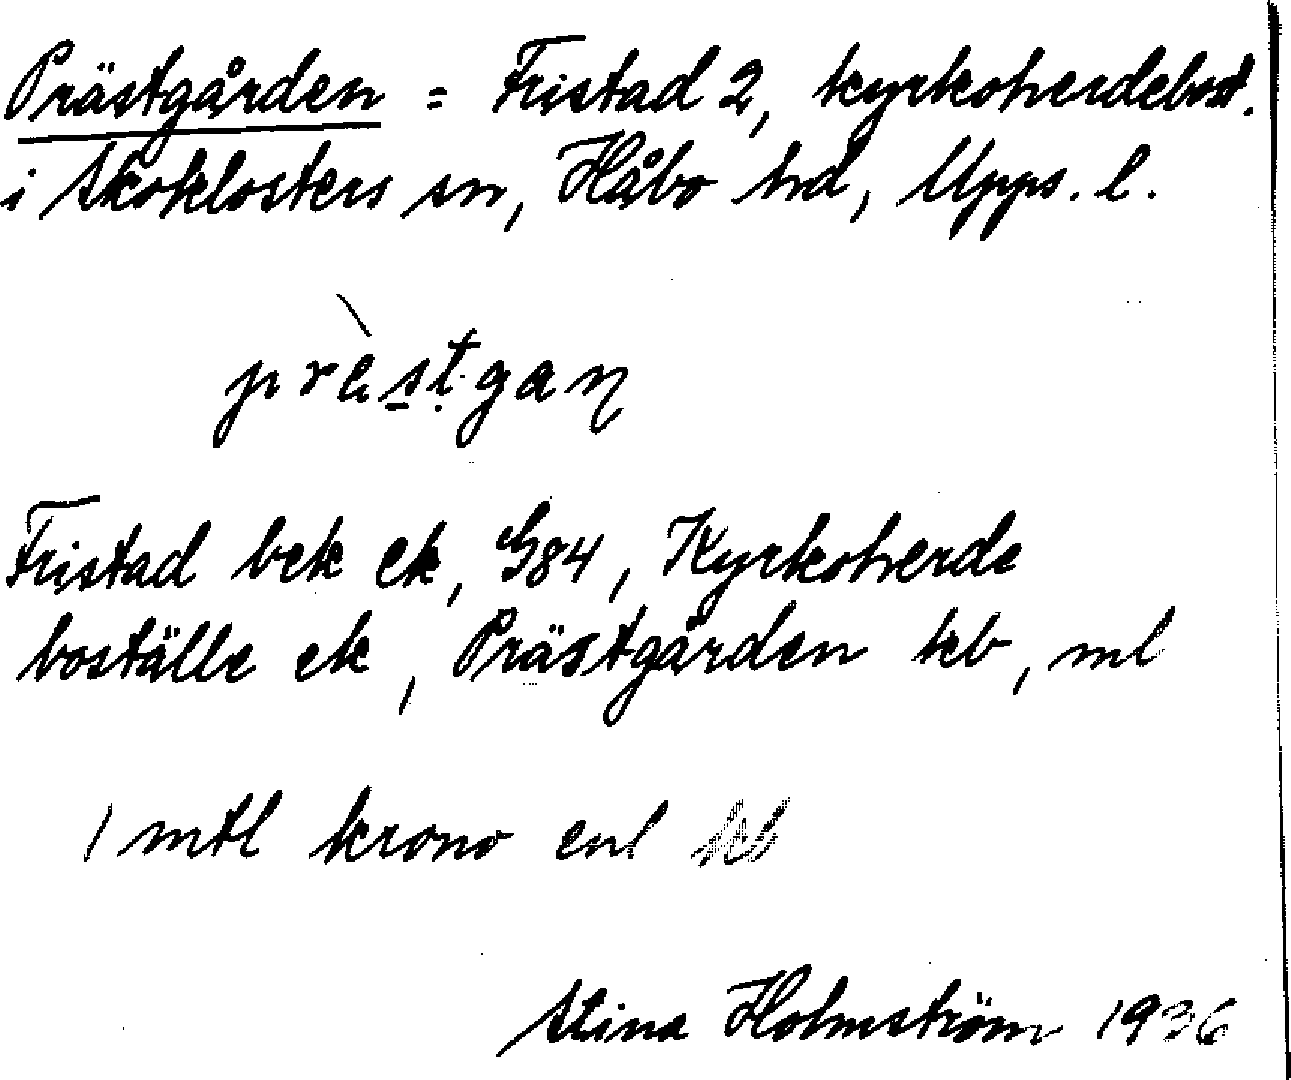 Prästgården = Fristad 2, kyrkoherdebost.
i Skoklosters sn, Håbo hd, Upps. l.
prèstgaɳ
Fristad bek ek, G84, Kyrkoherde
boställe ek, Prästgården kb, ml
1 mtl krono enl kb
Stina Holmström 1936